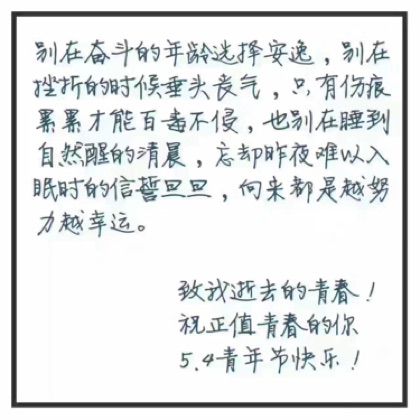 别在奋斗的年龄选择安逸，别在
挫折的时候垂头丧气，只有伤痕
累累才能百毒不侵，也别在睡到
自然醒的清晨，忘却昨夜难以入
眠时的信誓旦旦，向来都是越努
力越幸运。
致我逝去的青春！
祝正值青春的你
5.4青年节快乐！